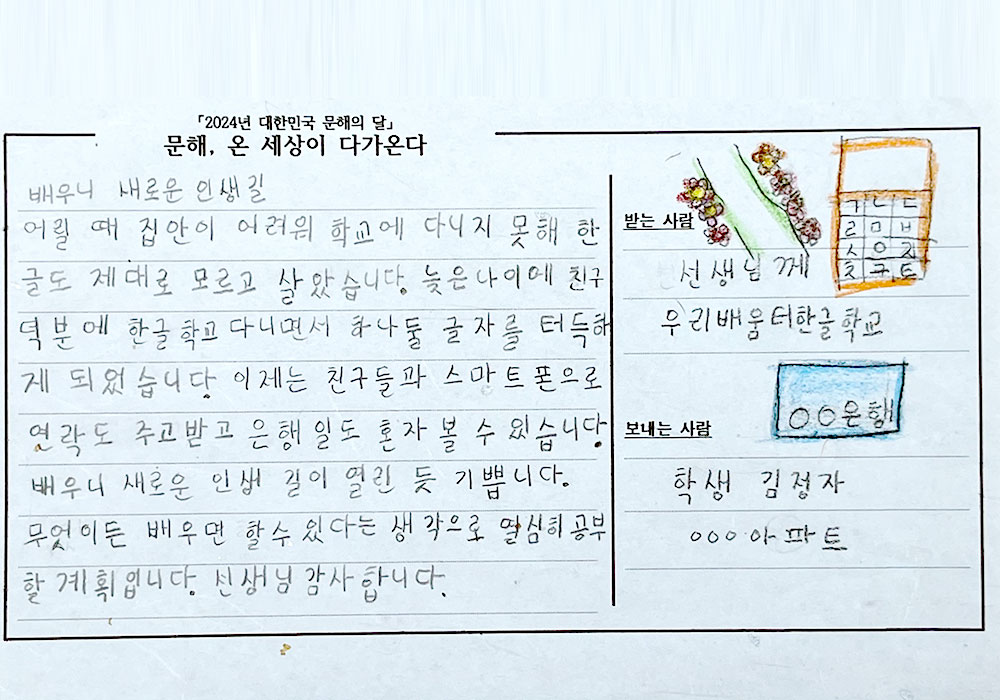 「2024년 대한민국 문해의 달」
문해, 온 세상이 다가온다
배우니 새로운 인생길
어릴 때 집안이 어려워 학교에 다니지 못해 한
글도 제대로 모르고 살았습니다. 늦은나이에 친구
덕분에 한글학교다니면서 하나둘 글자를 터득하
게 되었습니다. 이제는 친구들과 스마트폰으로
연락도 주고받고 은행일도 혼자 볼 수 있습니다.
배우니 새로운 인생 길이 열린 듯 기쁩니다.
무엇이든 배우면 할수 있다는 생각으로 열심히공부
할 계획입니다. 선생님감사합니다.
받는 사람
ㄱㄴㄷ
ㄹㅁㅂ
ㅅㅇㅈ
ㅊㅋㅌ
선생님께
우리배움터한글학교
○○은행
보내는 사람
학생 김정자
○○○아파트